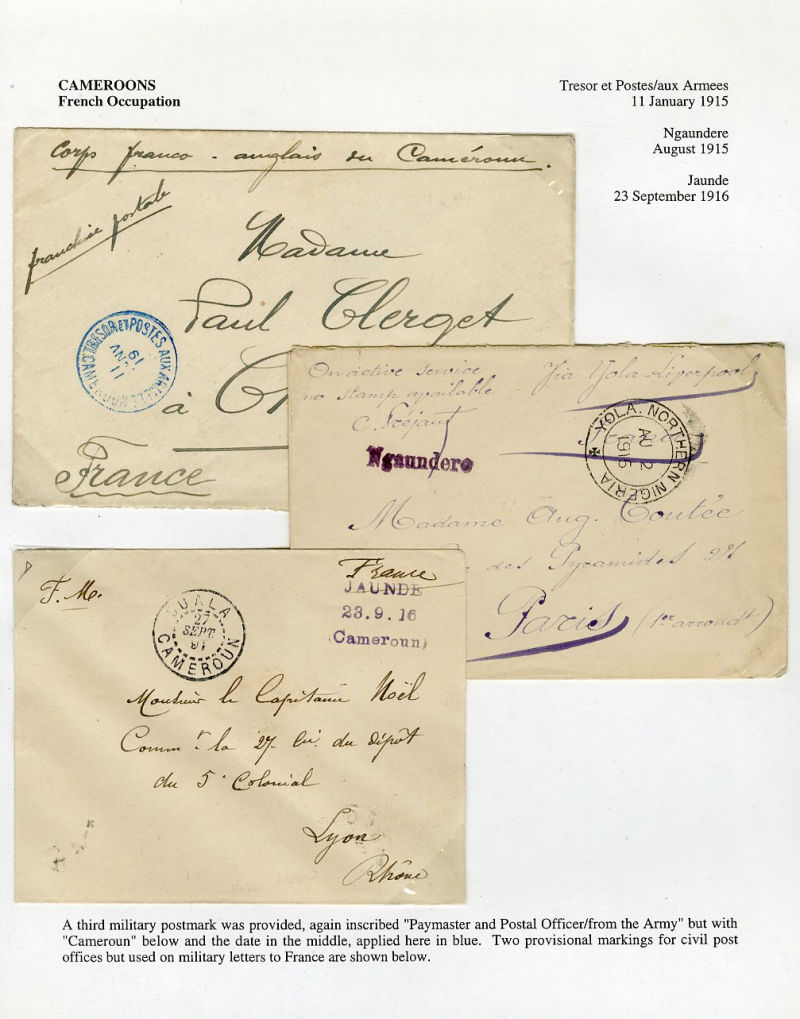 CAMEROONS
French Occupation
Tresor et Postes/aux Armees
11 January 1915
Ngaundere
August 1915
Jaunde
23 September 1916
Corps franco - anglais du Caméroun.
franchise postale
Madame
Paul Clerget
à
France
TRESOR ET POSTES AUX ARMEES
11
JANV
CAMEROUN
On active service
Via Yola-Liverpool
no stamp available
C. Fréjaut
Ngaundere
YOLA. NORTHERN NIGERIA
AU 2
1915
Madame Aug. Coutée
des Pyramides 27
Paris (1er arrondt)
F.M.
France
JAUNDE
23.9.16
(Cameroun)
DUALA
27
SEPT
CAMEROUN
Monsieur le Capitaine Noël
Commt la 27e Cie du dépôt
du 5e Colonial
Lyon
Rhône
A third military postmark was provided, again inscribed "Paymaster and Postal Officer/from the Army" but with
"Cameroun" below and the date in the middle, applied here in blue. Two provisional markings for civil post
offices but used on military letters to France are shown below.